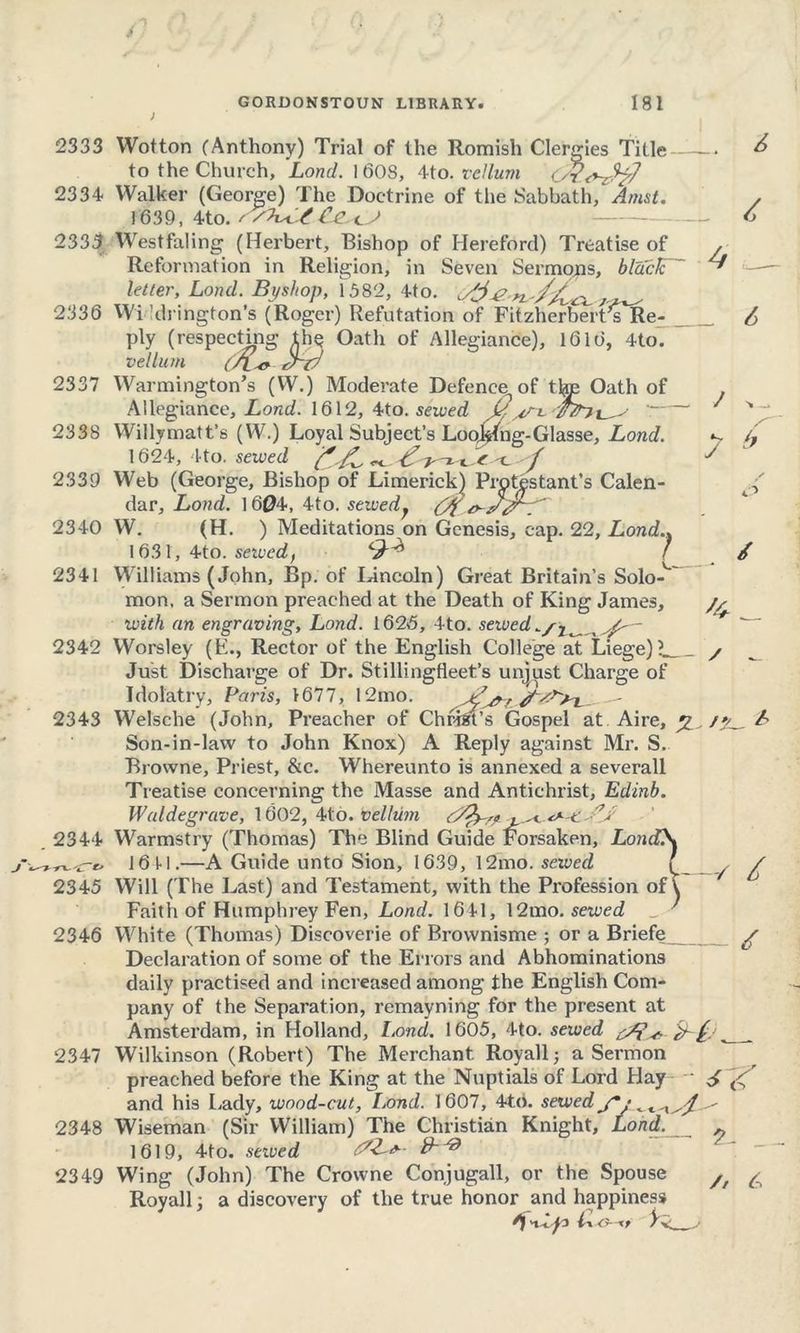 GORDONSTOUN LIBRARY. 181
2333 Wotton (Anthony) Trial of the Romish Clergies Title
to the Church, Lond. 1608, 4to. vellum
2334 Walker (George) The Doctrine of the Sabbath, Amst.
1639, 4to.
2335 Westfaling (Herbert, Bishop of Hereford) Treatise of
Reformation in Religion, in Seven Sermons, black
letter, Lond. Byshop, 1582, 4to.
2336 Widdrington's (Roger) Refutation of Fitzherbert's Re-
ply (respecting the Oath of Allegiance), 1616, 4to.
vellum
2337 Warmington's (W.) Moderate Defence of the Oath of
Allegiance, Lond. 1612, 4to. sewed
2338 Willymatt's (W.) Loyal Subject's Looking-Glasse, Lond.
1624, 4to. sewed
2339 Web (George, Bishop of Limerick) Protestant's Calen-
dar, Lond. 1604, 4to. sewed,
2340 W. (H. ) Meditations on Genesis, cap. 22, Lond.
1631, 4to. sewed,
2341 Williams (John, Bp. of Lincoln) Great Britain's Solo-
mon, a Sermon preached at the Death of King James,
with an engraving, Lond. 1625, 4to. sewed
2342 Worsley (E., Rector of the English College at Liege)
Just Discharge of Dr. Stillingfleet's unjust Charge of
Idolatry, Paris, 1677, 12mo.
2343 Welsche (John, Preacher of Christ's Gospel at Aire,
Son-in-law to John Knox) A Reply against Mr. S.
Browne, Priest, &c. Whereunto is annexed a severall
Treatise concerning the Masse and Antichrist, Edinb.
Waldegrave, 1602, 4to. vellum
2344 Warmstry (Thomas) The Blind Guide Forsaken, Lond.
1641.—A Guide unto Sion, 1639, 12mo. sewed
2345 Will (The Last) and Testament, with the Profession of
Faith of Humphrey Fen, Lond. 1641, 12mo. sewed
2346 White (Thomas) Discoverie of Brownisme ; or a Briefe
Declaration of some of the Errors and Abhominations
daily practised and increased among the English Com-
pany of the Separation, remayning for the present at
Amsterdam, in Holland, Lond. 1605, 4to. sewed
2347 Wilkinson (Robert) The Merchant Royall; a Sermon
preached before the King at the Nuptials of Lord Hay
and his Lady, wood-cut, Lond. 1607, 4to. sewed
2348 Wiseman (Sir William) The Christian Knight, Lond.
1619, 4to. sewed
2349 Wing (John) The Crowne Conjugall, or the Spouse
Royall; a discovery of the true honor and happiness